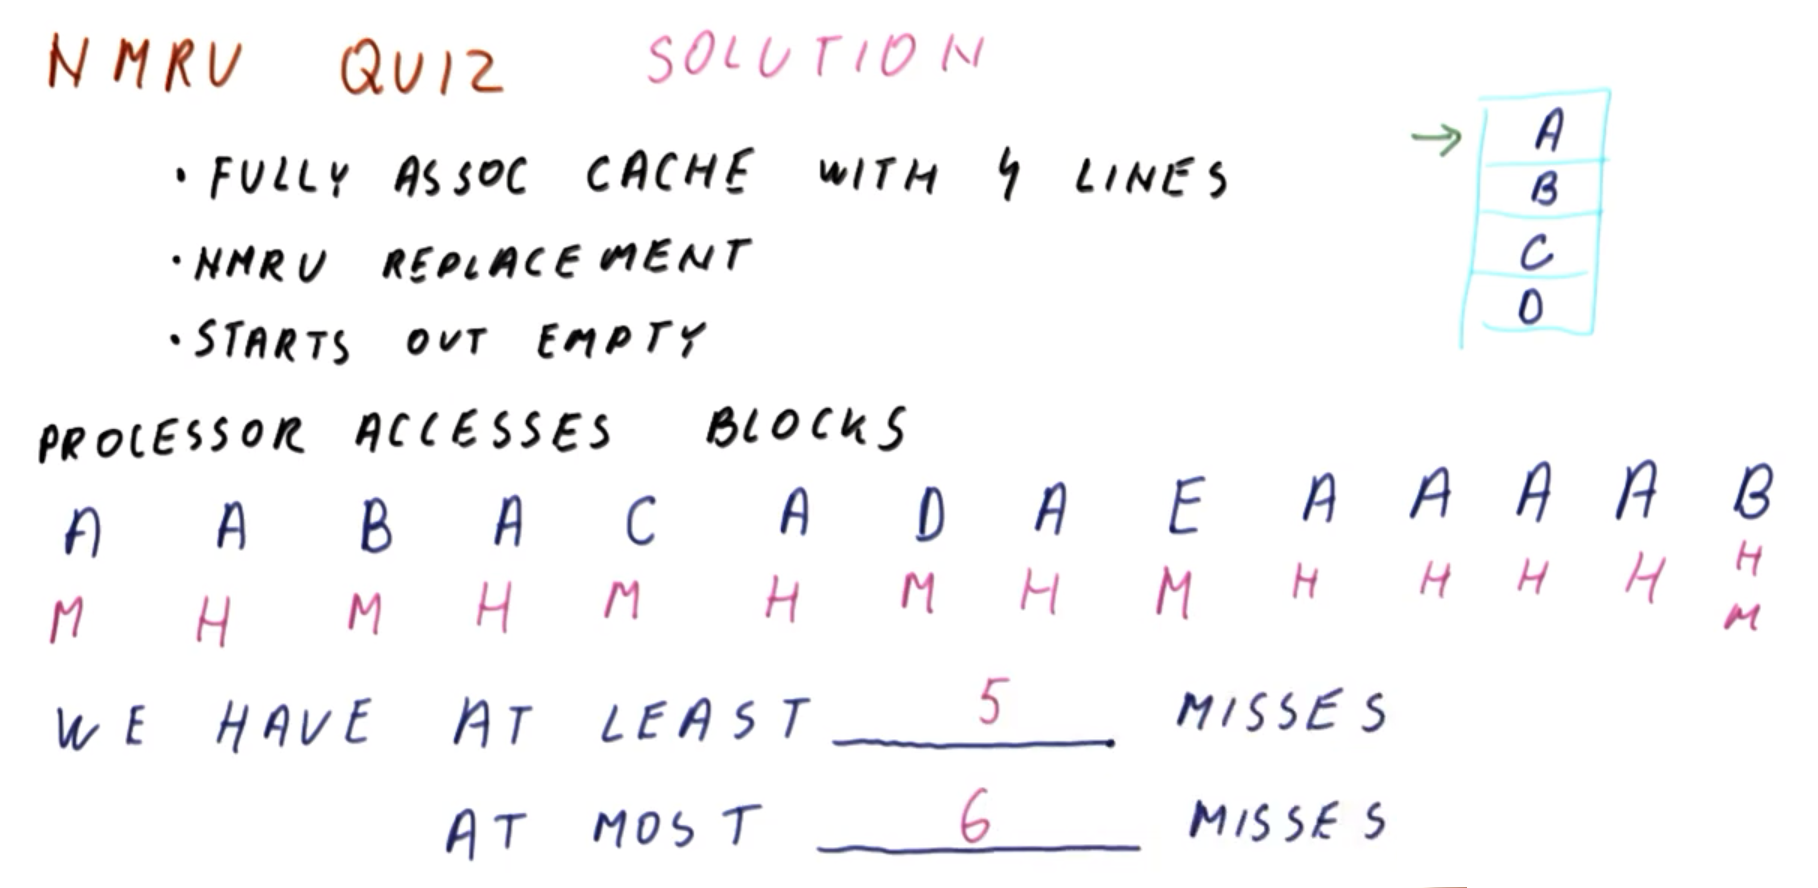 NMRU QUIZ SOLUTION
→ A
B
C
D
· FULLY ASSOC CACHE WITH 4 LINES
· NMRU REPLACEMENT
· STARTS OUT EMPTY
PROCESSOR ACCESSES BLOCKS
A A B A C A D A E A A A A B
M H M H M H M H M H H H H H
M
WE HAVE AT LEAST 5 MISSES
AT MOST 6 MISSES